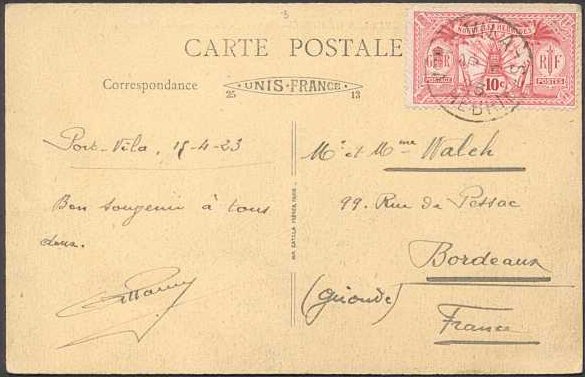 CARTE POSTALE
Correspondance
UNIS-FRANCE
25 13
NOUVELLES HEBRIDES
G R R F
POSTAGE 10c POSTES
Port-Vila, 15-4-23
Bon souvenir à tous
deux.
Mr et Mme Walch
99. Rue de Pessac
Bordeaux
(Gironde)
France
IMP. CATALA FRÈRES, PARIS